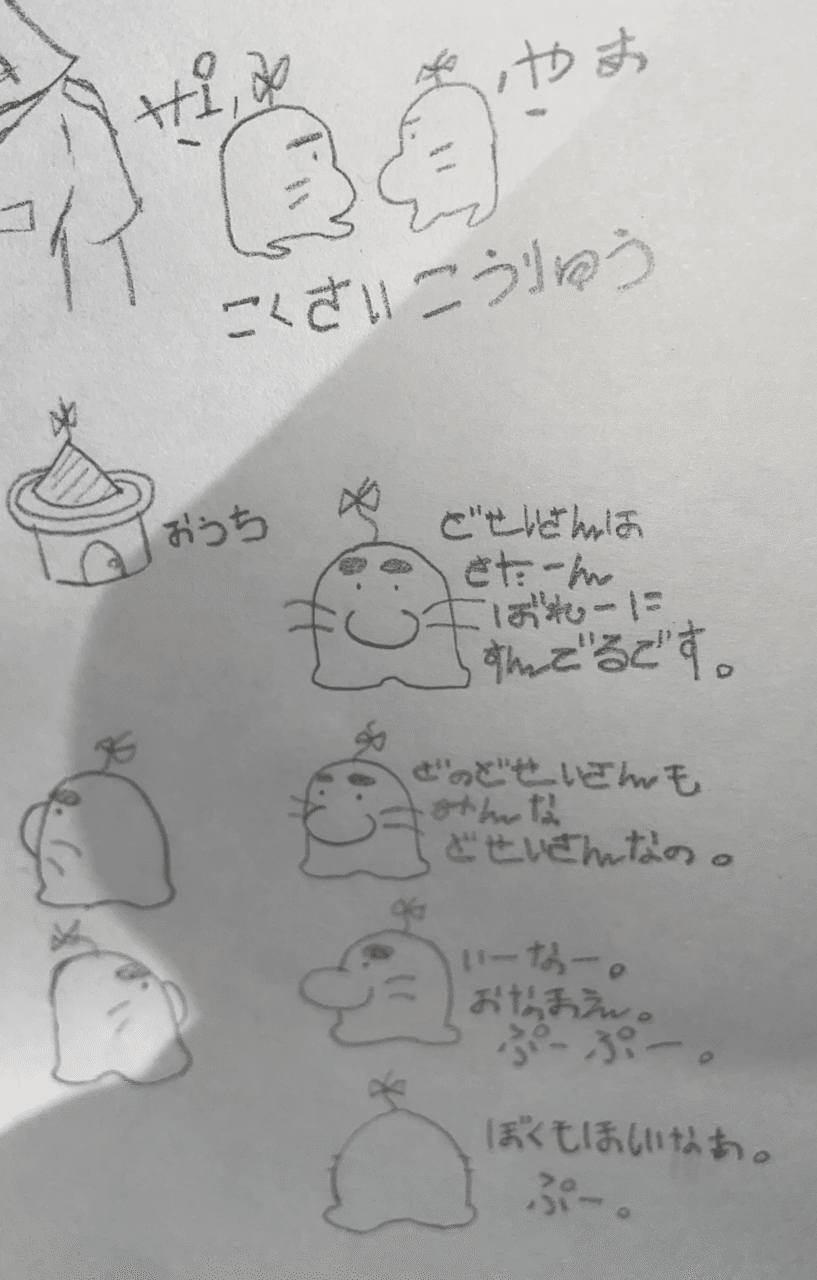 こくさいこうりゅう
おうち
どせいさんは
さたーん
ばれーに
すんでるです。
どのどせいさんも
みんな
どせいさんなの。
いーなー。
おなまえ。
ぷーぷー。
ぼくもほしいなあ。
ぷー。